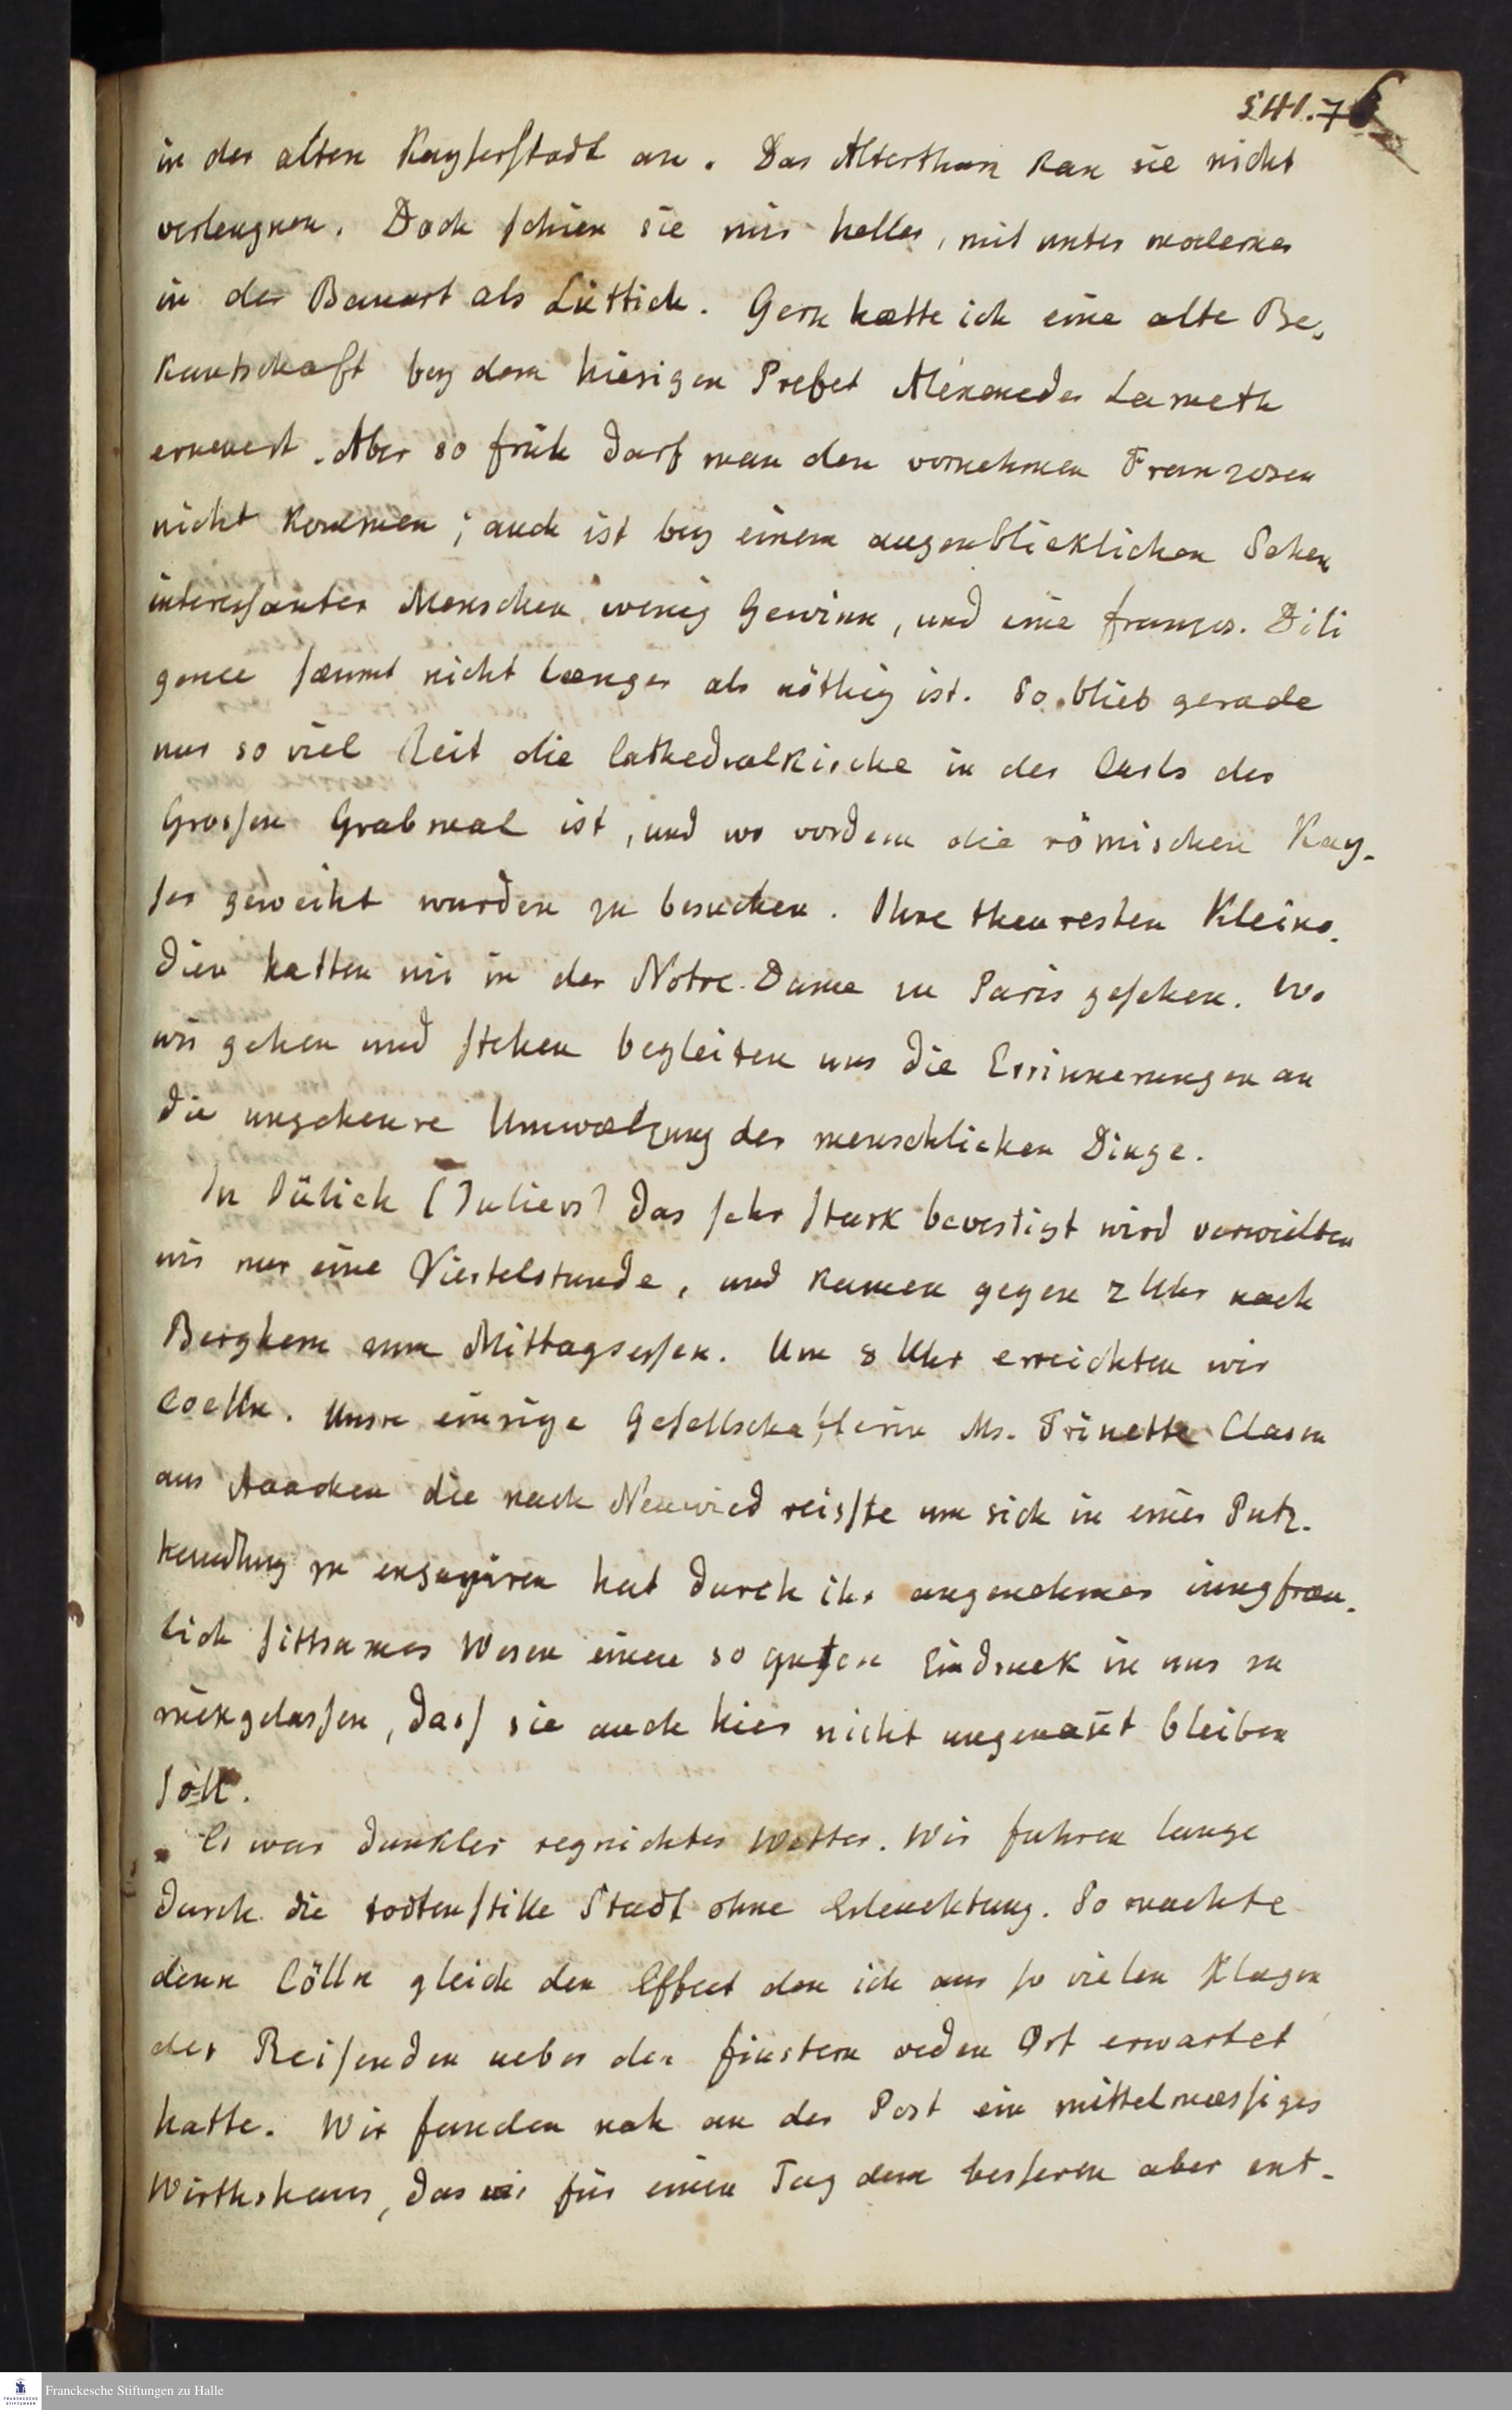 541.76
in der alten Kayserstadt an. Das Alterthum kan sie nicht
verleugnen. Doch schien sie mir heller, mit unter moderner
in der Bauart als Lüttich. Gern hætte ich eine alte Be,
kantschaft bey dem hiesigen Prefet Alexander Lameth
erneuert. Aber so früh darf man den vornehmen Franzosen
nicht kommen; auch ist bey einem augenblicklichen Sehen
interessanter Menschen wenig Gewinn, und eine franzos. Dili
gence sæumt nicht længer als nöthig ist. So blieb gerade
nur so viel Zeit die Cathedralkirche in der Carls des
Grossen Grabmal ist, und wo vordem die römischen Kay-
ser geweiht wurden zu besuchen. Ihre theuresten Kleino-
dien hatten wir in der Notre-Dame zu Paris gesehen. Wo
wir gehen und stehen begleiten uns die Errinnerungen an
die ungeheure Umwælzung der menschlichen Dinge.
In Jülich (Juliers) das sehr stark bevestigt wird verweilten
wir nur eine Viertelstunde, und kamen gegen 2 Uhr nach
Berghem zum Mittagsessen. Um 8 Uhr erreichten wir
Coelln. Unsre einzige Gesellschafterin Ms. Trinette Clasen
aus Aachen die nach Neuwied reisste um sich in einer Putz-
handlung zu engagiren hat durch ihr angenehmes iungfræu-
lich sittsames Wesen einen so guten Eindruck in uns zu
rückgelassen, dass sie auch hier nicht ungenañt bleiben
soll.
Es war dunkles regnichtes Wetter. Wir fuhren lange
durch die todtenstille Stadt ohne Erleuchtung. So machte
denn Cölln gleich den Effect den ich aus so vielen Klagen
der Reisenden ueber den finstern oeden Ort erwartet
hatte. Wir fanden nah an der Post ein mittelmæssiges
Wirthshaus, das wir für einen Tag dem besseren aber ent-
Franckesche Stiftungen zu Halle